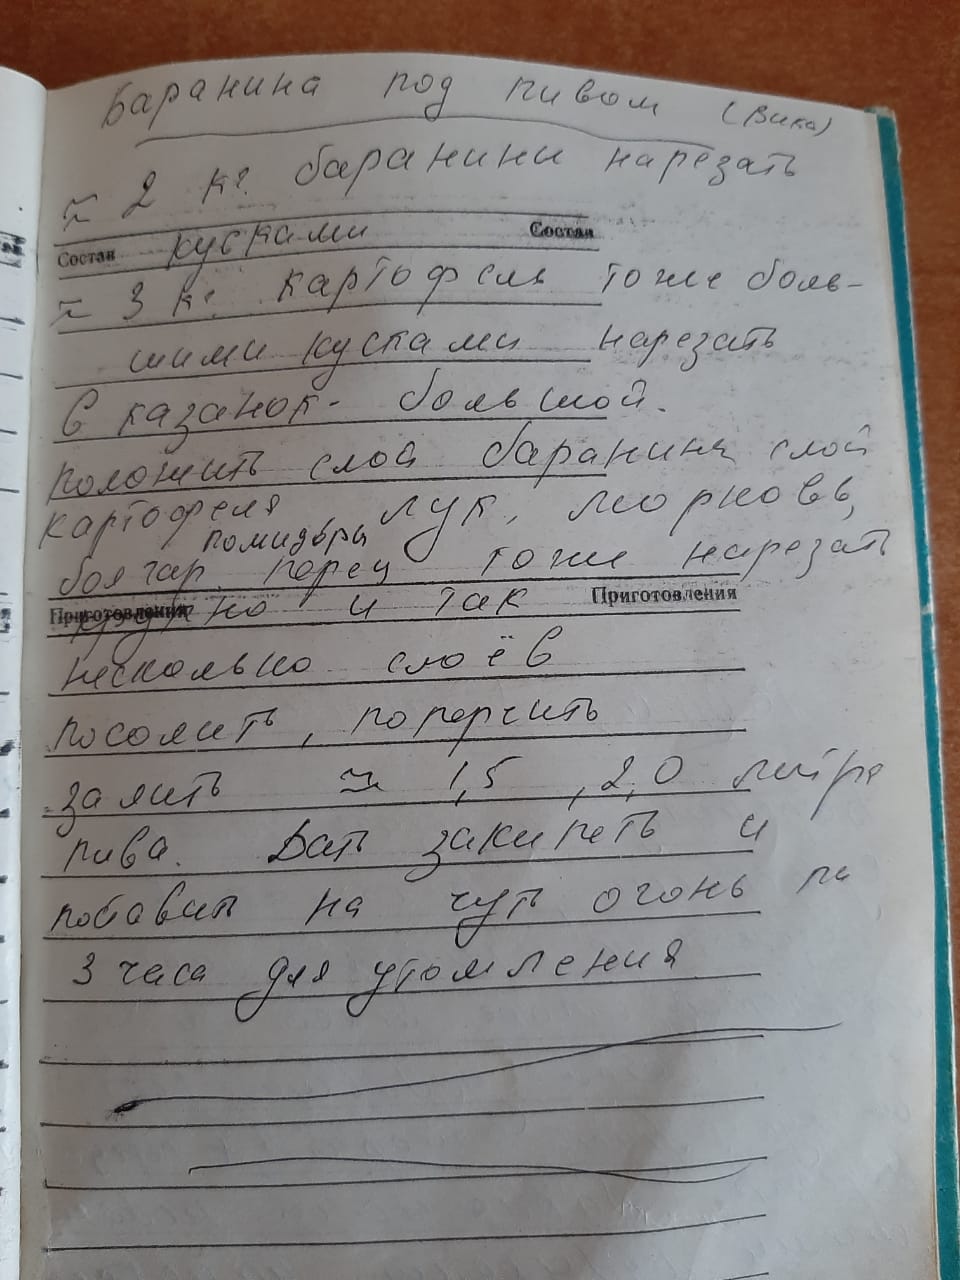 Баранина под пивом (Вика)
≈ 2 кг. баранини нарезать
Состав кусками Состав
≈ 3 кг. картофель тоже боль-
шими кусками нарезать
В казанок - большой.
положить слой баранина слой
картофеля лук, морковь,
помидоры
болгар. перец тоже нарезать
Приготовления крупно и так Приготовления
несколько слоёв
посолить, поперчить
залить ≈ 1,5, 2,0 литра
пива. Дать закипеть и
поставить на чуть огонь на
3 часа для утомления